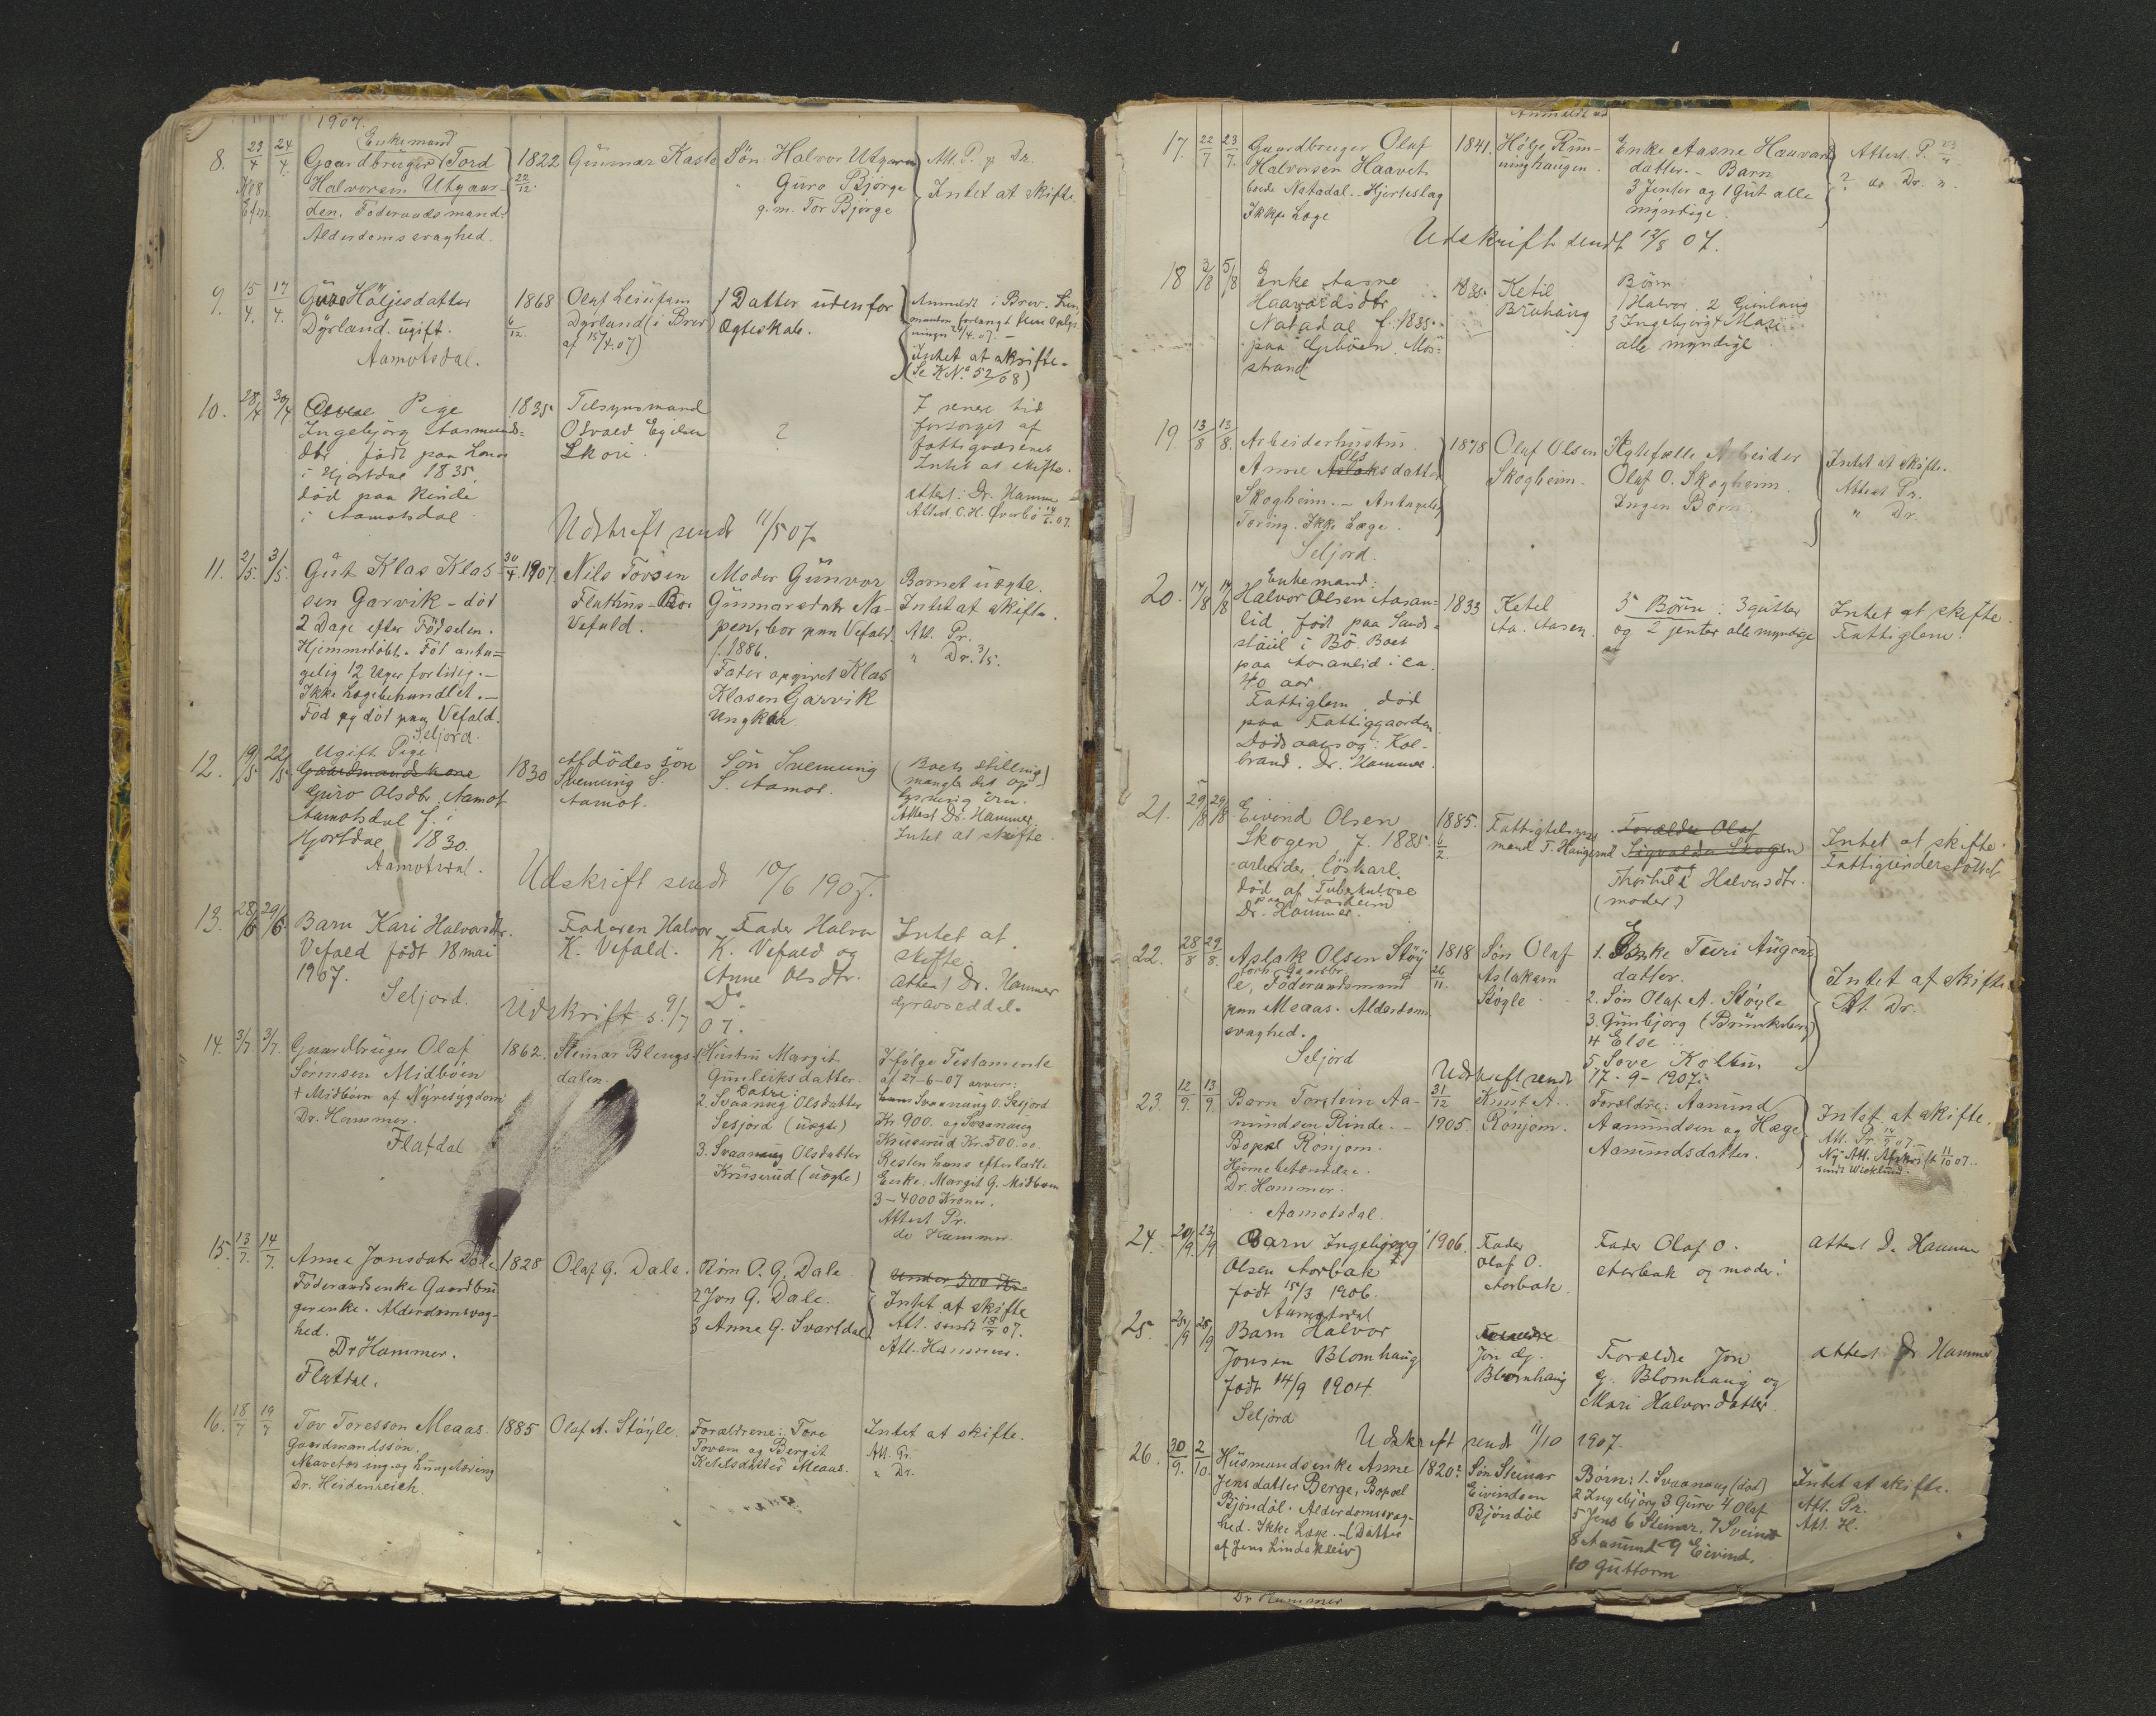 1907.
8. 23/4 24/4. Enkemand
Gaardbruger Tord
Halvorsen Utgaar-
den. Föderaadsmand.
Alderdomssvaghed.
1822
22/12.
Gunnar Kaslo
Sön: Halvor Utgaren
" Guro Bjørge
g. m. Tor Bjørge
Att. P. & Dr.
Intet at skifte.
9. 15/4. 17/4. Guro Höljesdatter
Dyrland. ugift.
Aamotsdal.
1868
6/12.
Dyrland (i Brev
af 15/4.07)
1 Datter udenfor
Ægteskab.
Anmeldt i Brev.
Intet at skifte.
(Se K No. 52/08)
10. 28/4 30/4 Pige
Ingebjörg Aasmunds=
dtr. født paa
i Hjartdal 1835.
död paa Rinde
i Aamotsdal
1835.
Tilsynsmand
Osvald Egilsen
Skori
?
I senere tid
forsørget af
fattigvæsenet
Intet at skifte.
Attest: Dr. Hammer
Attest O. H. Øverbö 14/6.07.
Udskrift sendt 11/5 07.
11. 2/5. 3/5. Gut Klas Klas-
sen Garvik - död
2 Dage efter Födselen.
Hjemmedöbt. Föt anta=
gelig 12 Uger for tidlig. -
Ikke Lægebehandlet. -
Föd og död paa Vefald.
Seljord.
30/4. 1907
Nils Tovsen
Vefald.
Moder Gunvor
Gunnarsdatr Na-
pen, bor paa Vefald
f. 1886.
Fader opgivet Klas
Klasen Garvik
Ungkar
Barnet uægte.
Intet at skifte.
Att. Pr.
" Dr. 3/5.
12. 19/5 22/5 Ugift Pige
Gaardmandskone
Guro Olsdtr. Aamot
Aamotsdal f. i
Hjartdal 1830.
Aamotsdal.
1830
Afdödes sön
Svenung S.
Aamot.
Sön Svenung
S. Aamot.
(Boets stilling)
mangler det op-
lysning om.
Attest Dr. Hammer
Intet at skifte.
Udskrift sendt 10/6 1907.
13. 28/6 29/6. Barn Kari Halvorsdtr.
Vefald født 18 mai
1907.
Seljord.
Faderen Halvor
K. Vefald.
Fader Halvor
K. Vefald og
Anne Olsdtr.
Do
Intet at
skifte.
Attest Dr. Hammer
Gravseddel.
Udskrift s. 9/7 07.
14. 3/7. 3/7. Gaardbruger Olaf
Sorensen Midböen
+ Midböen af Nyresygdom
Dr. Hammer.
Flatdal
1862.
Steinar Blengs-
dalen.
Hustru Margit
Gunleiksdatter.
Døtre:
2. Svaanaug Olsdatter
Sesjord (uægte)
3. Svaanaug Olsdatter
Kruserud (uægte)
Ifølge Testamente
af 27-6-07 arver:
Svaanaug O. Sesjord
Kr. 900. og Svaanaug
Kruserud Kr. 500.00.
Resten hans efterladte
Enke: Margit G. Midböen
3-4000 Kroner.
Attest Pr.
do Hammer
15. 13/7. 14/7. Anne Jonsdatr Dale
Föderaadsenke Gaardbru
gerenke. Alderdomssvag-
hed.
Dr Hammer.
Flatdal.
1828
Olaf G. Dale.
Börn O. G. Dale
2 Jon G. Dale.
3 Anne G. Svartdal
Under 500 Kr.
Intet at skifte
Att. sendt 18/7 07.
Att. Hammer.
16. 18/7 19/7 Tov Toresson Meaas.
Gaardmandssön.
Mavetæring og Lungetæring
Dr. Heidenreich.
1885
Olaf A. Støyle.
Forældrene: Tore
Tovsen og Bergit
Ketilsdatter Meaas.
Intet at skifte.
Att. Pr.
" Dr.
Anmeldt ved
17. 22/7 23/7. Gaardbruger Olaf
Halvorsen Haavet
boede Natadal. - Hjerteslag
Ikke Læge
1841.
Hölje Rün-
ninghaugen.
Enke Aasne Haavards
datter. - Barn
3 Jenter og 1 Gut alle
myndige.
Attest. P.
? do Dr. ".
Udskrift sendt 12/8 07.
18 3/8 5/8 Enke Aasne
Haavardsdtr
Natadal f. 1835.
paa Gibøen. Mös=
strand
1835.
Ketil
Bruhaug
Börn:
1 Halvor 2 Gunlaug
3 Ingebjørg 4 Mari
alle myndige.
19 13/8 13/8. Arbeiderhustru
Ols
Anne Aslaksdatter
Skogheim. - Antagelig
Tæring. Ikke Læge.
Seljord.
1878
Olaf Olsen
Skogheim.
Ægtefælle Arbeider
Olaf O. Skogheim.
Ingen Børn.
Intet at skifte.
Attest Pr.
" Dr.
20. 14/8 14/8 Enkemand:
Halvor Olsen Aasan=
lid født paa Sands=
i Bö. Boet
paa Aasanlid i ca.
40 aar.
Fattiglem. död
paa Fattiggaarden
Dödsaarsag: Kol-
brand. Dr. Hammer.
1833
Ketel
Aa. Aasen.
5 Börn: 3 gutter
og 2 jenter alle myndige
Intet at skifte.
Fattiglem.
21. 29/8 29/8 Eivind Olsen
Skogen f. 1885.
arbeider. löskarl.
död af Tuberkulose
paa Aasheim
Dr. Hammer.
1885.
6/2.
Fattigtilsyns
mand T. Haugerud
Forældre Olaf
Sigvaldsen Skogen
Halvorsdtr.
(moder)
Intet at skifte.
Fattigunderstöttet
22. 28/8 29/8. Aslak Olsen Støy
forh. Gaardbr.
le, Föderaadsmand
paa Meaas. Alderdoms
svaghed.
Seljord
1818
26/11.
Sön Olaf
Aslaksen
Støyle
1. Enke Turi Augons
datter.
2. Sön Olaf A. Støyle
3. Gunbjørg (Brunkeberg)
4 Else
5 Sove Koltun
Intet at skifte.
At. Dr.
Udskrift sendt 17-9-1907.
23 12/9. 13/9. Barn Torstein Aa-
mundsen Rinde. -
Bopæl Rönjom.
Hjernebetændelse.
Dr. Hammer.
Aamotsdal.
31/12
1905.
Knut A.
Rönjom.
Forældre: Aanund
Aanundsen og Hæge
Aanundsdatter.
Intet at skifte.
Att. Pr. 14/9 07.
Ny Att. Afskrift 11/10 07.
24. 20/9. 23/9 Barn Ingebjørg
Olsen Aarbak
født 15/3 1906.
Aamotsdal
1906.
Fader
Olaf O.
Aarbak.
Fader Olaf O.
Aarbak og moder:
attest Dr Hammer
25. 25/9 25/9 Barn Halvor
Jonsen Blomhaug
født 14/9 1904.
Seljord
Forældre
Jon G.
Blomhaug
Forældre Jon
G. Blomhaug og
Mari Halvorsdatter.
attest Dr Hammer
Udskrift sendt 11/10 1907.
26. 30/9. 2/10. Husmandsenke Anne
Jensdatter Berge, Bopæl
Bjöndöl. Alderdomssvag-
hed. Ikke Læge. - (Datter
af Jens Lindekleiv)
1820?
Sön Steinar
Eivindsen
Bjöndöl
Børn: 1. Svaanaug (död)
2 Ingebjörg 3 Guro 4 Olaf
5 Jens 6 Steinar. 7 Svein
8 Aanund 9 Eivind.
10 Guttorm
Intet at skifte.
Att. Pr.
Att. H.
Dr Hammer